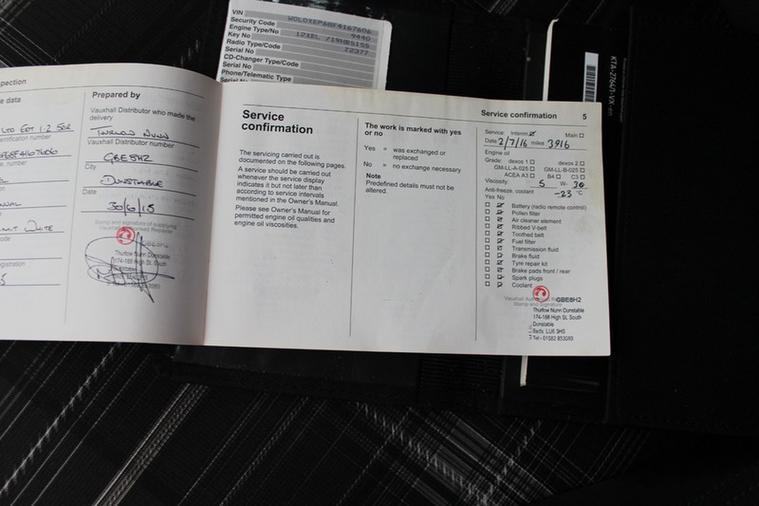 VIN W0L0XEP68F4167606
Security Code 9440
Engine Type/No
Key No
Radio Type/Code
Serial No
CD-Changer Type/Code
Serial No
Phone/Telematic Type
KTA-2764/1-VX-en
Prepared by
Vauxhall Distributor who made the
delivery
THURLOW NUNN
Vauxhall Distributor number
GBE8H2
City
DUNSTABLE
Date
30/6/15
Stamp and signature of supplying
Thurlow Nunn Dunstable
174-188 High St. South
Service
confirmation
The servicing carried out is
documented on the following pages.
A service should be carried out
whenever the service display
indicates it but not later than
according to service intervals
mentioned in the Owner's Manual.
Please see Owner's Manual for
permitted engine oil qualities and
engine oil viscosities.
The work is marked with yes
or no
Yes = was exchanged or
replaced
No = no exchange necessary
Note
Predefined details must not be
altered.
Service confirmation 5
Service: Interim Main
Date 2/7/16 miles 3916
Engine oil
Grade: dexos 1 dexos 2
GM-LL-A-025 GM-LL-B-025
ACEA A3 B4 C3
Viscosity 5 W- 30
Anti-freeze, coolant -23 °C
Yes No
Battery (radio remote control)
Pollen filter
Air cleaner element
Ribbed V-belt
Toothed belt
Fuel filter
Transmission fluid
Brake fluid
Tyre repair kit
Brake pads front / rear
Spark plugs
Coolant
GBE8H2
Stamp and Signature
Thurlow Nunn Dunstable
174-188 High St. South
Dunstable
Beds LU6 3HS